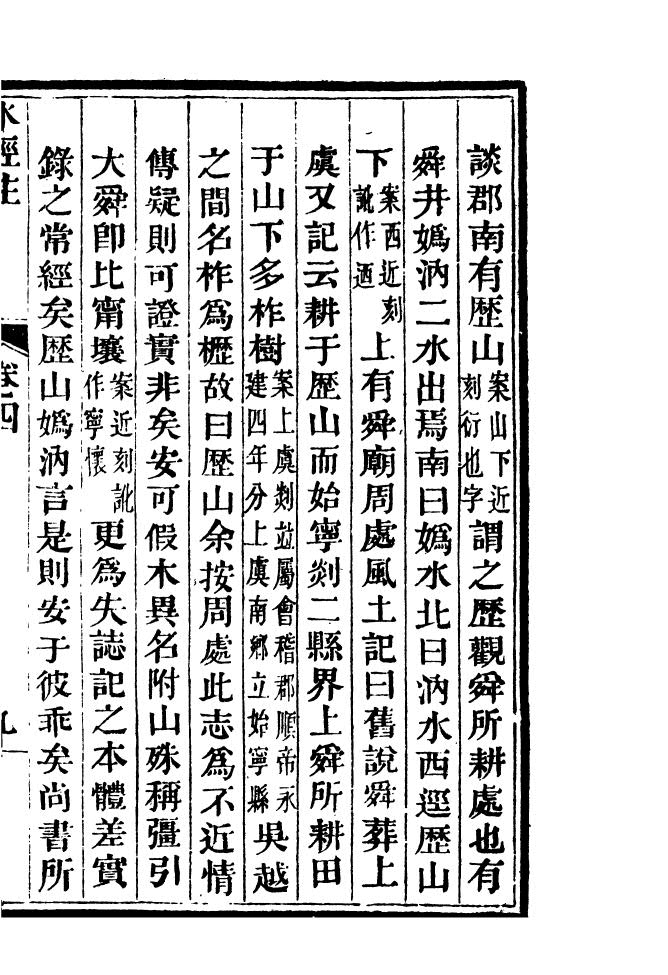 談郡南有歷山案山下近刻衍也字謂之歷觀舜所耕處也有
舜井嬀汭二水出焉南曰嬀水北曰汭水西逕歷山
下案西近刻訛作迺上有舜廟周處風土記曰舊說舜葬上
虞又記云耕于歷山而始寧剡二縣界上舜所耕田
于山下多柞樹案上虞剡並屬會稽郡順帝永建四年分上虞南鄉立始寧縣吳越
之間名柞爲櫪故曰歷山余按周處此志爲不近情
傳疑則可證實非矣安可假木異名附山殊稱彊引
大舜卽比甯壤案近刻訛作寧懷更爲失誌記之本體差實
錄之常經矣歷山嬀汭言是則安于彼乖矣尚書所
水經注 卷四 九